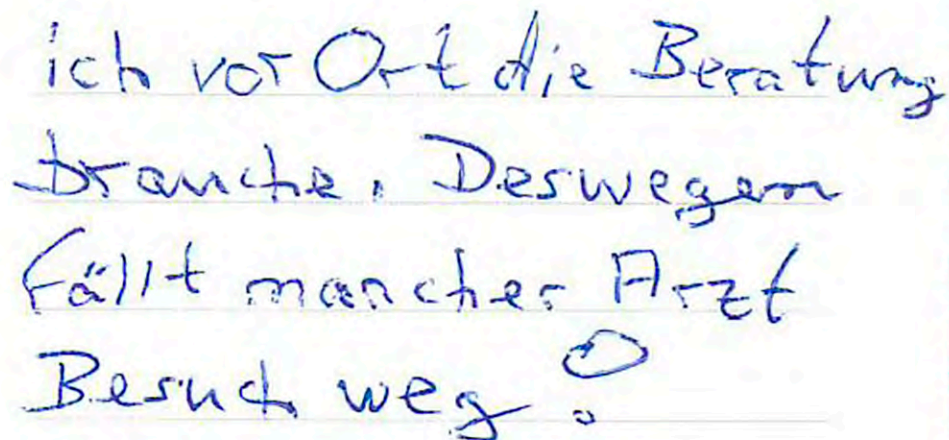 ich vor Ort die Beratung
brauche. Deswegen
fällt mancher Arzt
Besuch weg!